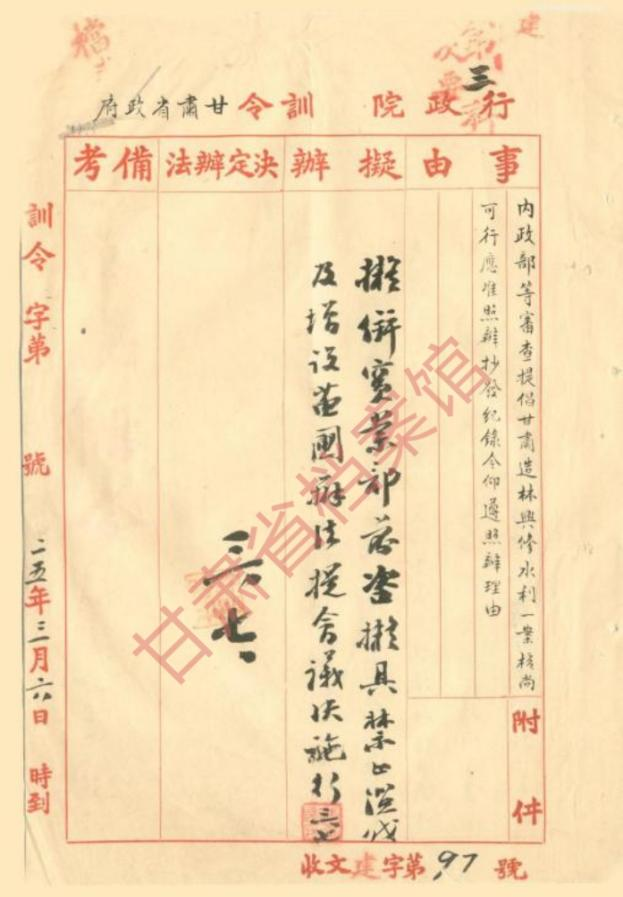 建
行政院訓令甘肅省政府
三
事由
擬辦
決定辦法
備考
內政部等審查提倡甘肅造林與修水利一案核尚
可行應准照辦抄發紀錄令仰遵照辦理由
附件
擬併實業部前咨擬具禁止濫伐
及增設苗圃辦法提會議決施行
三七
三、七、
訓令 字第 號
二五年三月六日 時到
收文建字第97號
甘肃省档案馆